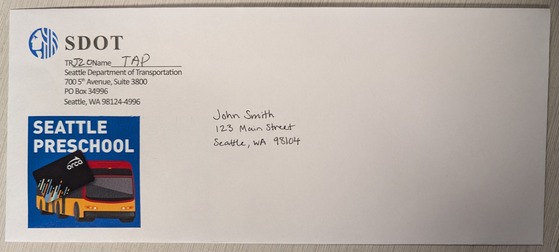 SDOT
TRJ20Name TAP
Seattle Department of Transportation
700 5th Avenue, Suite 3800
PO Box 34996
Seattle, WA 98124-4996
SEATTLE
PRESCHOOL
orca
John Smith
123 Main Street
Seattle, WA 98104